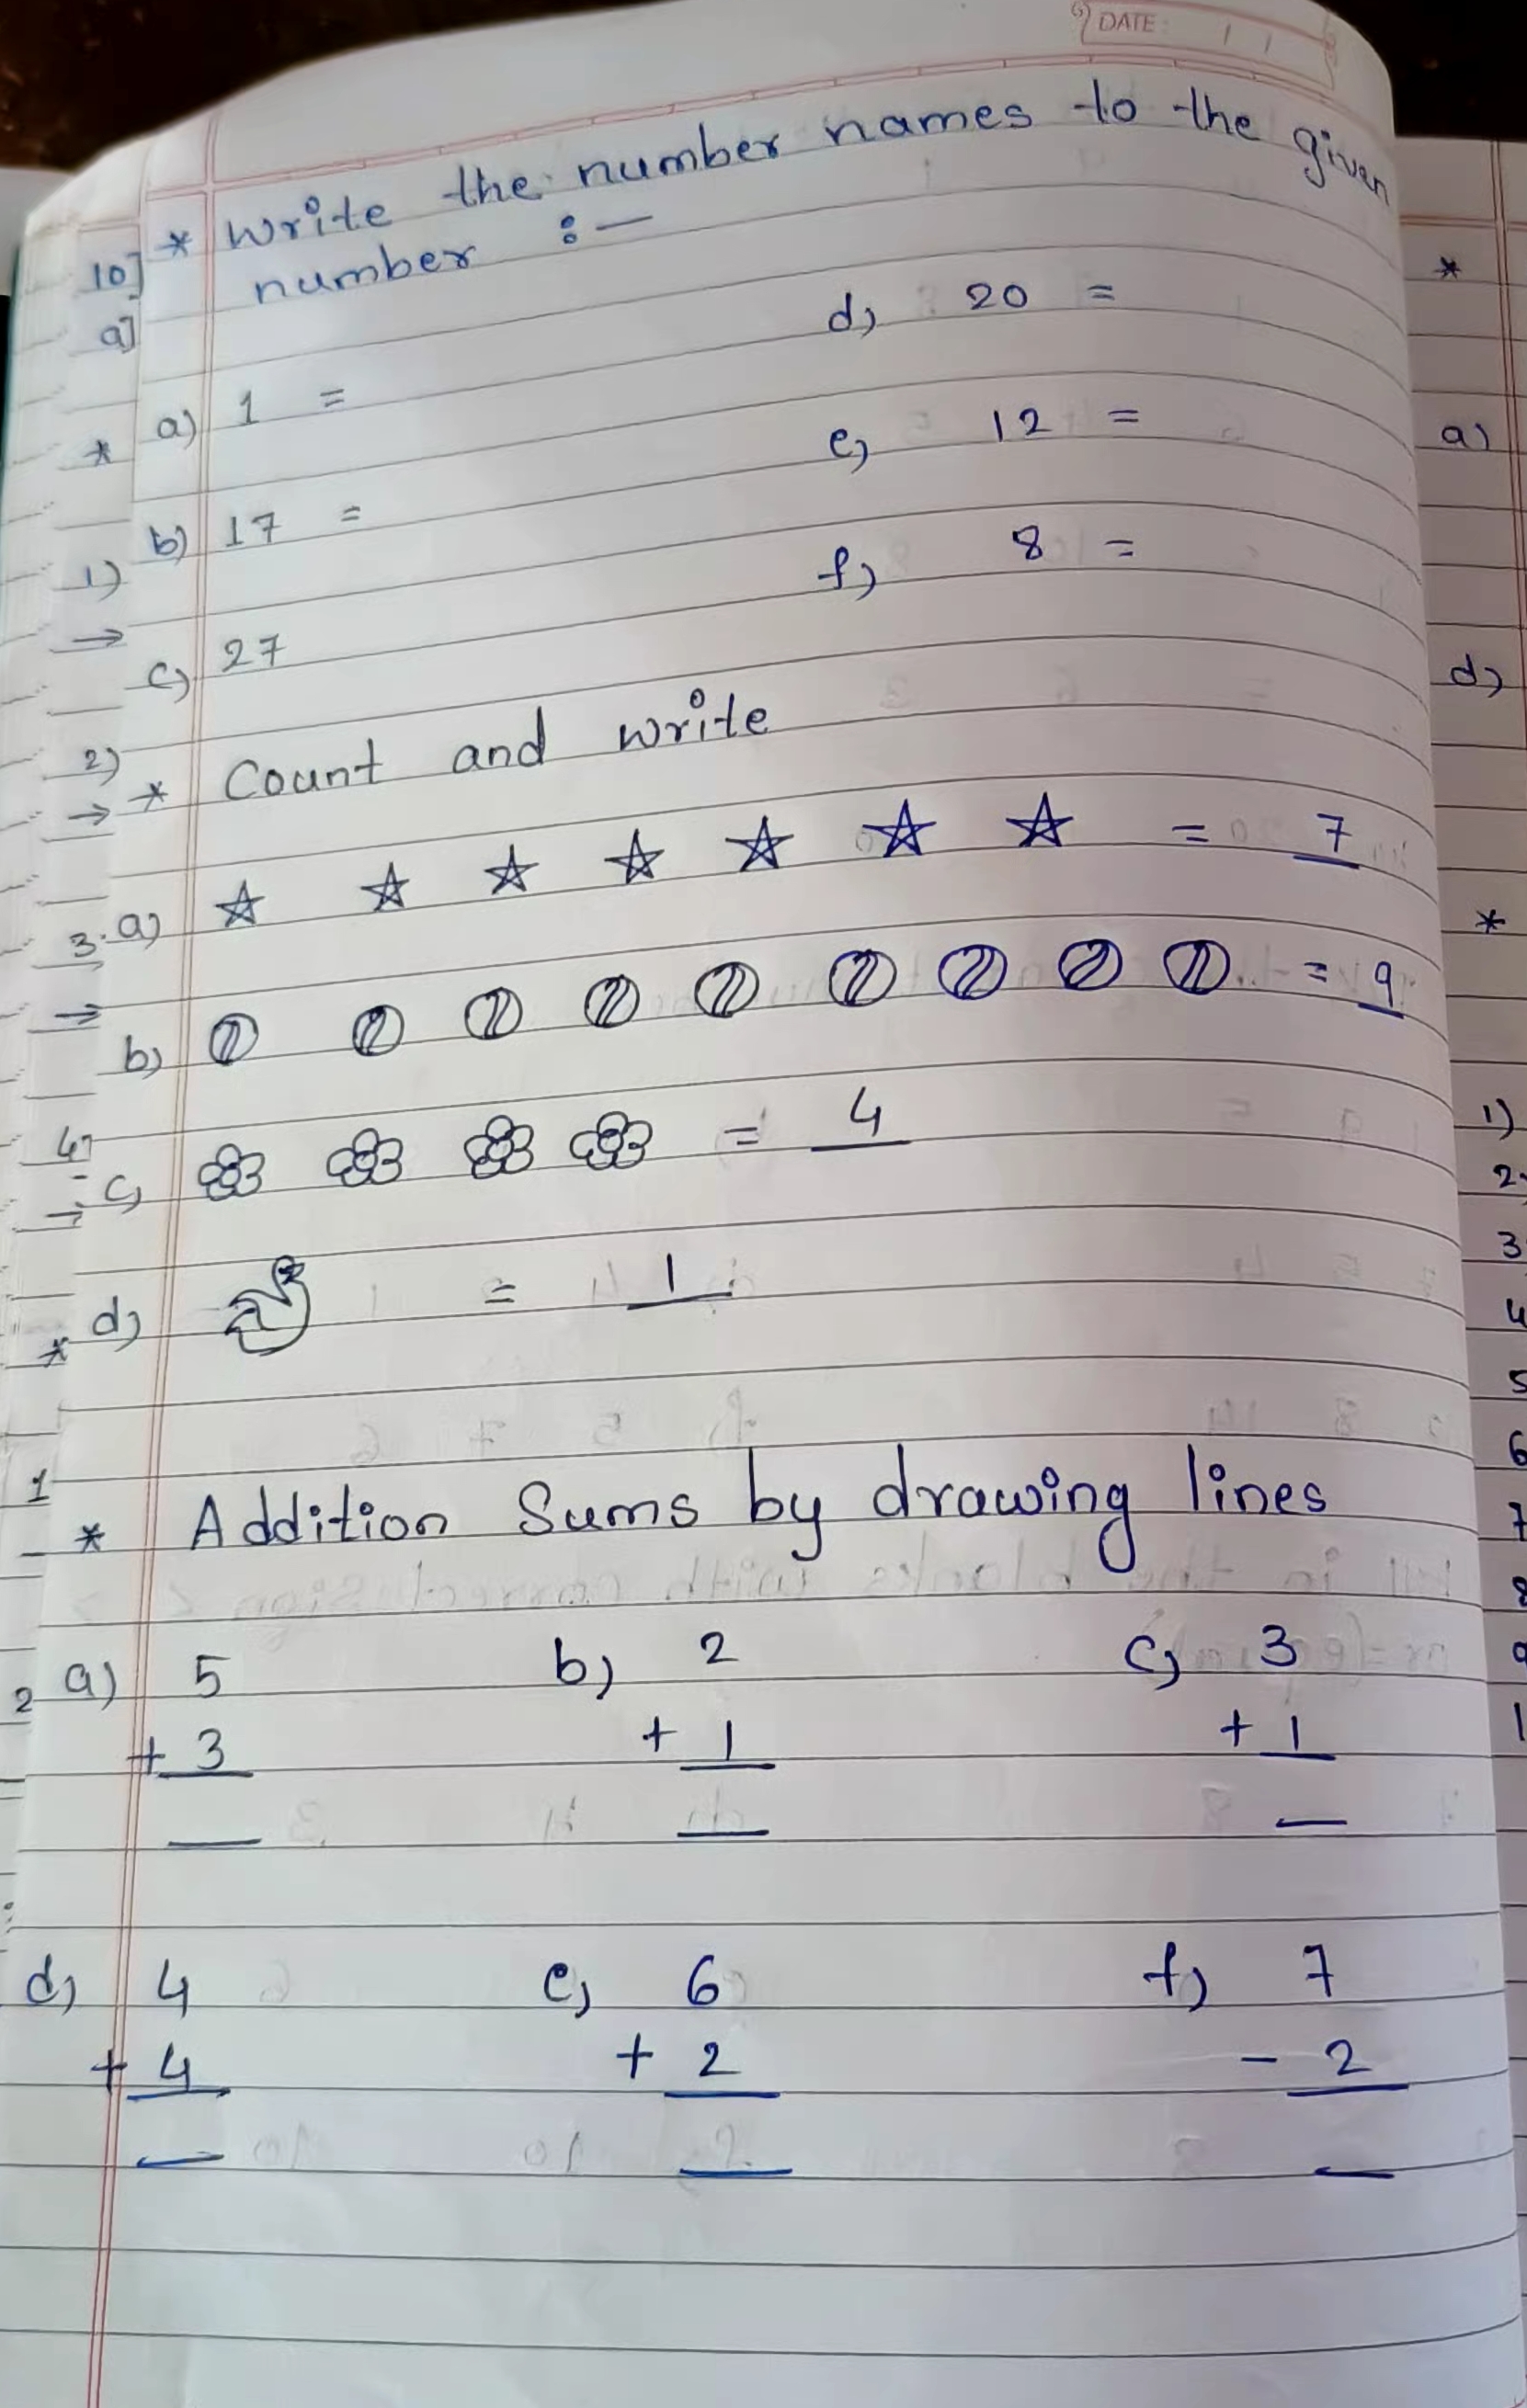 DATE: / /
* Write the number names to the given
number :-
a) 1 =
d) 20 =
b) 17 =
e) 12 =
c) 27
f) 8 =
* Count and write
a) = 7
b) = 9
c) = 4
d) = 1
* Addition Sums by drawing lines
a) 5 b) 2 c) 3
+ 3 + 1 + 1
d) 4 e) 6 f) 7
+ 4 + 2 - 2
10]
a]
*
1)
→
2)
→
3.
→
4)
→
*
1
2
*
a)
d)
*
1)
2.
3
4
5
6
7
8
9
1